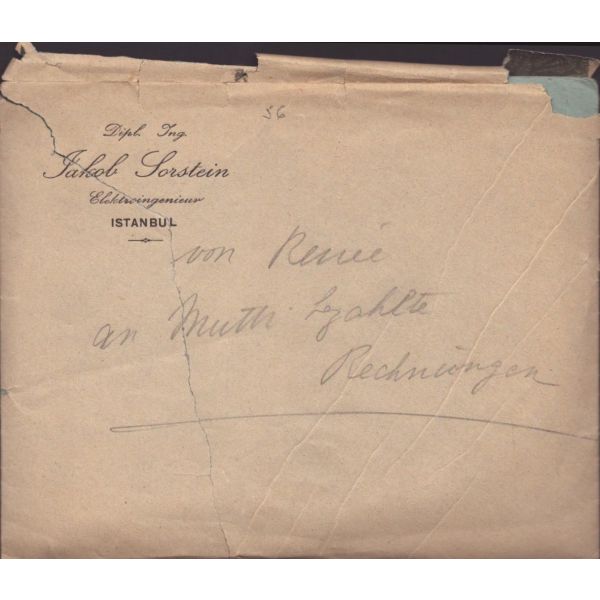 56
Dipl. Ing.
Jakob Sorstein
Elektroingenieur
ISTANBUL
von Renée
an Mutti bezahlte
Rechnungen